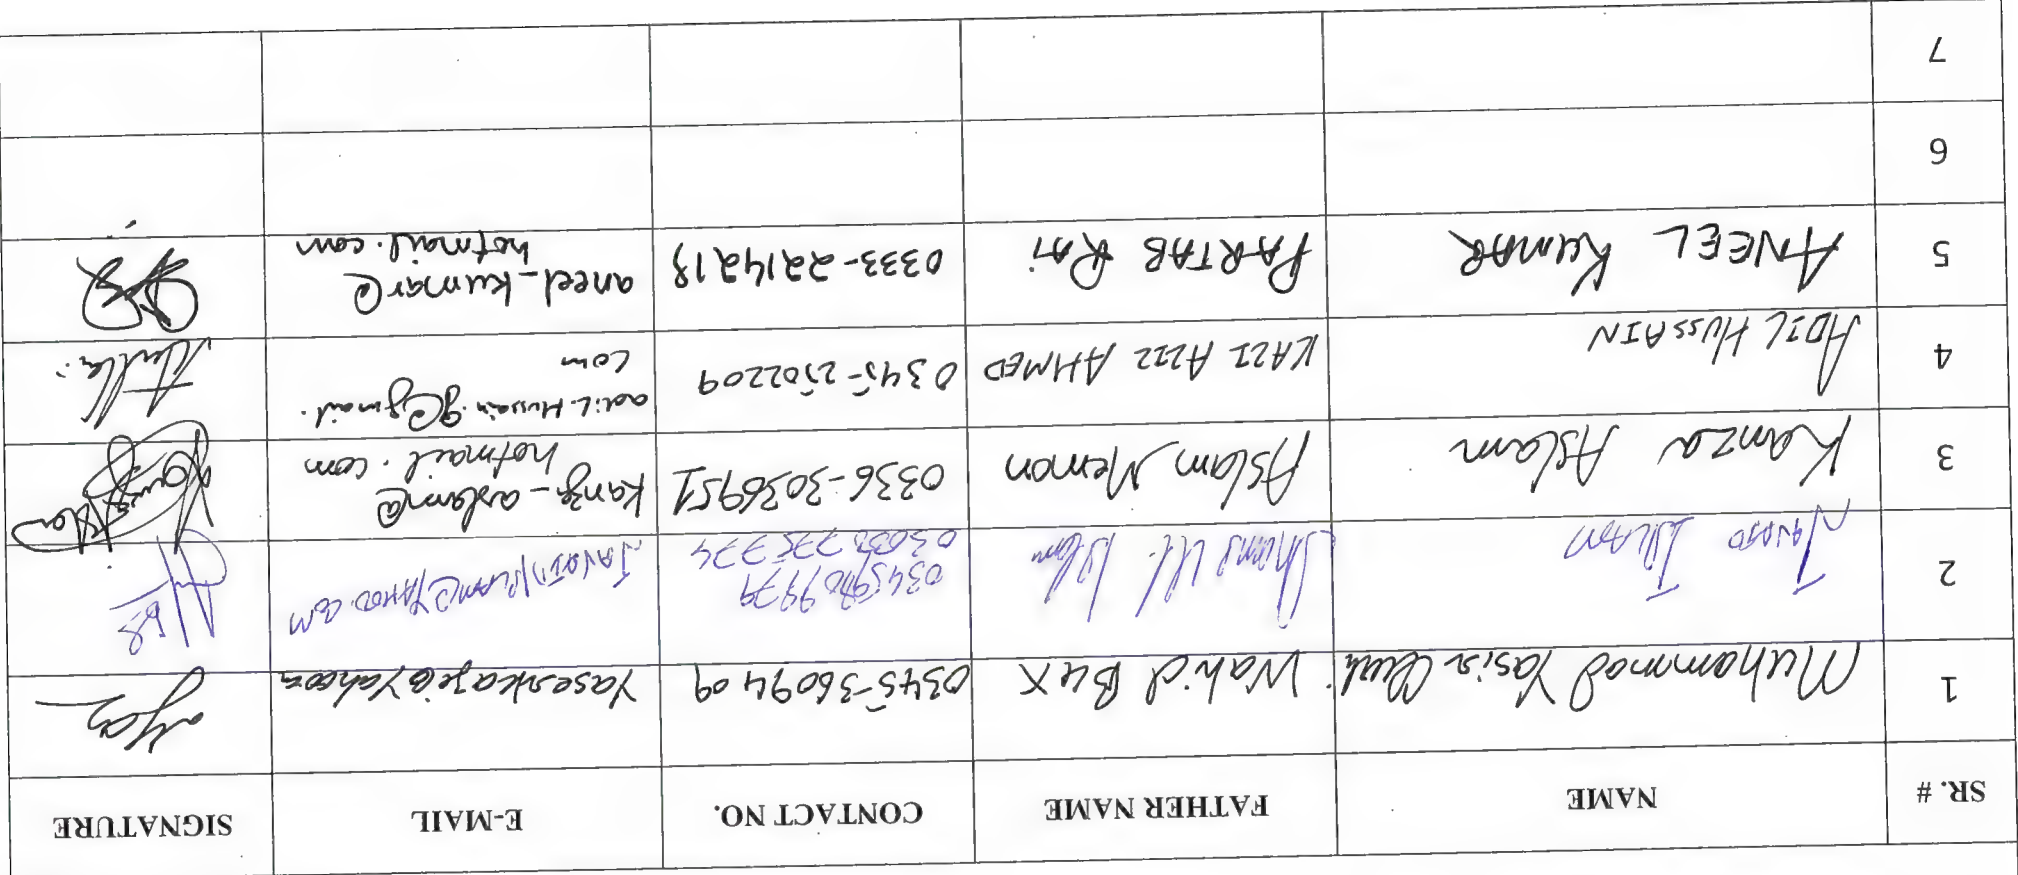 SR. # NAME FATHER NAME CONTACT NO. E-MAIL SIGNATURE
1 Muhammad Yasin Wahid Bux 0345-3609409 Yaseenkazi@Yahoo
2 JAVAID ISLAM Shams Ul. Islam
JAVAIDISLAM@YAHOO.COM
3 Kanza Aslam Aslam Memon 0336-3036951 Kanza_aslam@
hotmail.com
4 ADIL HUSSAIN KAZI AZIZ AHMED 0345-2502209 adil.Hussain.9@gmail.
com
5 ANEEL KUMAR PARTAB RAI 0333-2214213 aneel_kumar@
hotmail.com
6
7